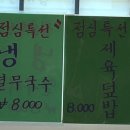 점심특선
냉
열무국수
₩ 8.000
점심특선
제육덮밥
8.000